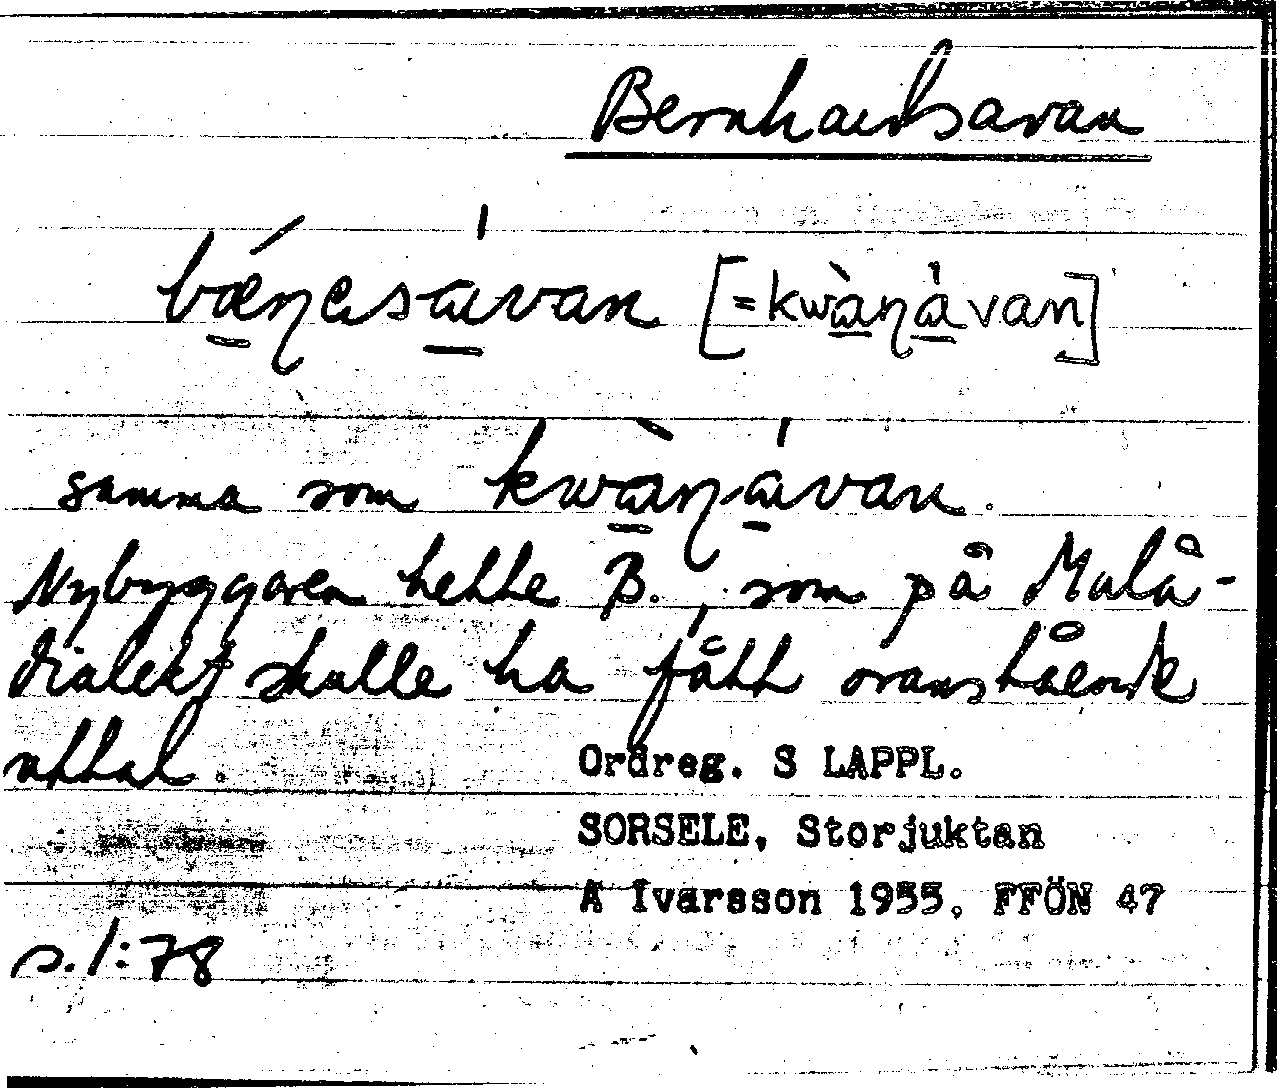 Bernhardsavan
bǽ̱ŋɐsa̱̍van [=kwà̱ŋa̱̍van]
samma som kwà̱ŋa̱̍van.
Nybyggaren hette B., som på Malå-
dialekt skulle ha fått ovanstående
uttal.
Ordreg. S LAPPL.
SORSELE, Storjuktan
A Ivarsson 1955. FFÖN 47
s. 1:78